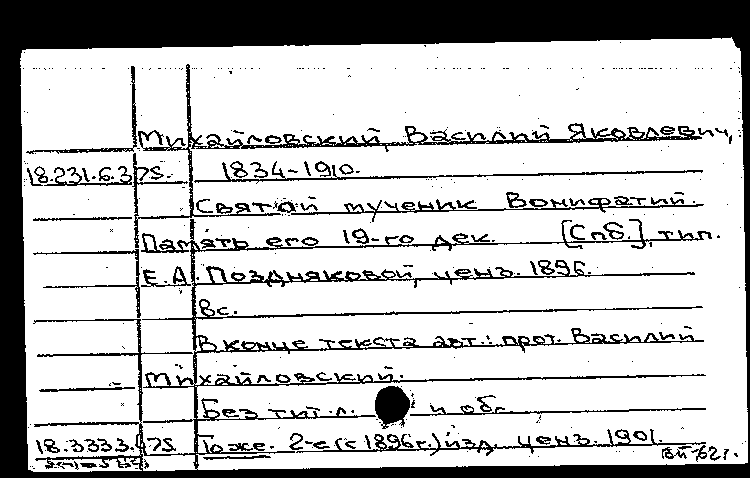 Михайловский, Василий Яковлевич,
18.231.6.375. 1834-1910.
Святой мученик Вонифатий.
Память его 19-го дек. [Спб.], тип.
Е.А. Поздняковой, ценз. 1896.
8с.
В конце текста авт.: прот. Василий
Михайловский.
Без тит. л. и обл.
18.3333.475 То же. 2-е (с 1896г.) изд. ценз. 1901.
62г.